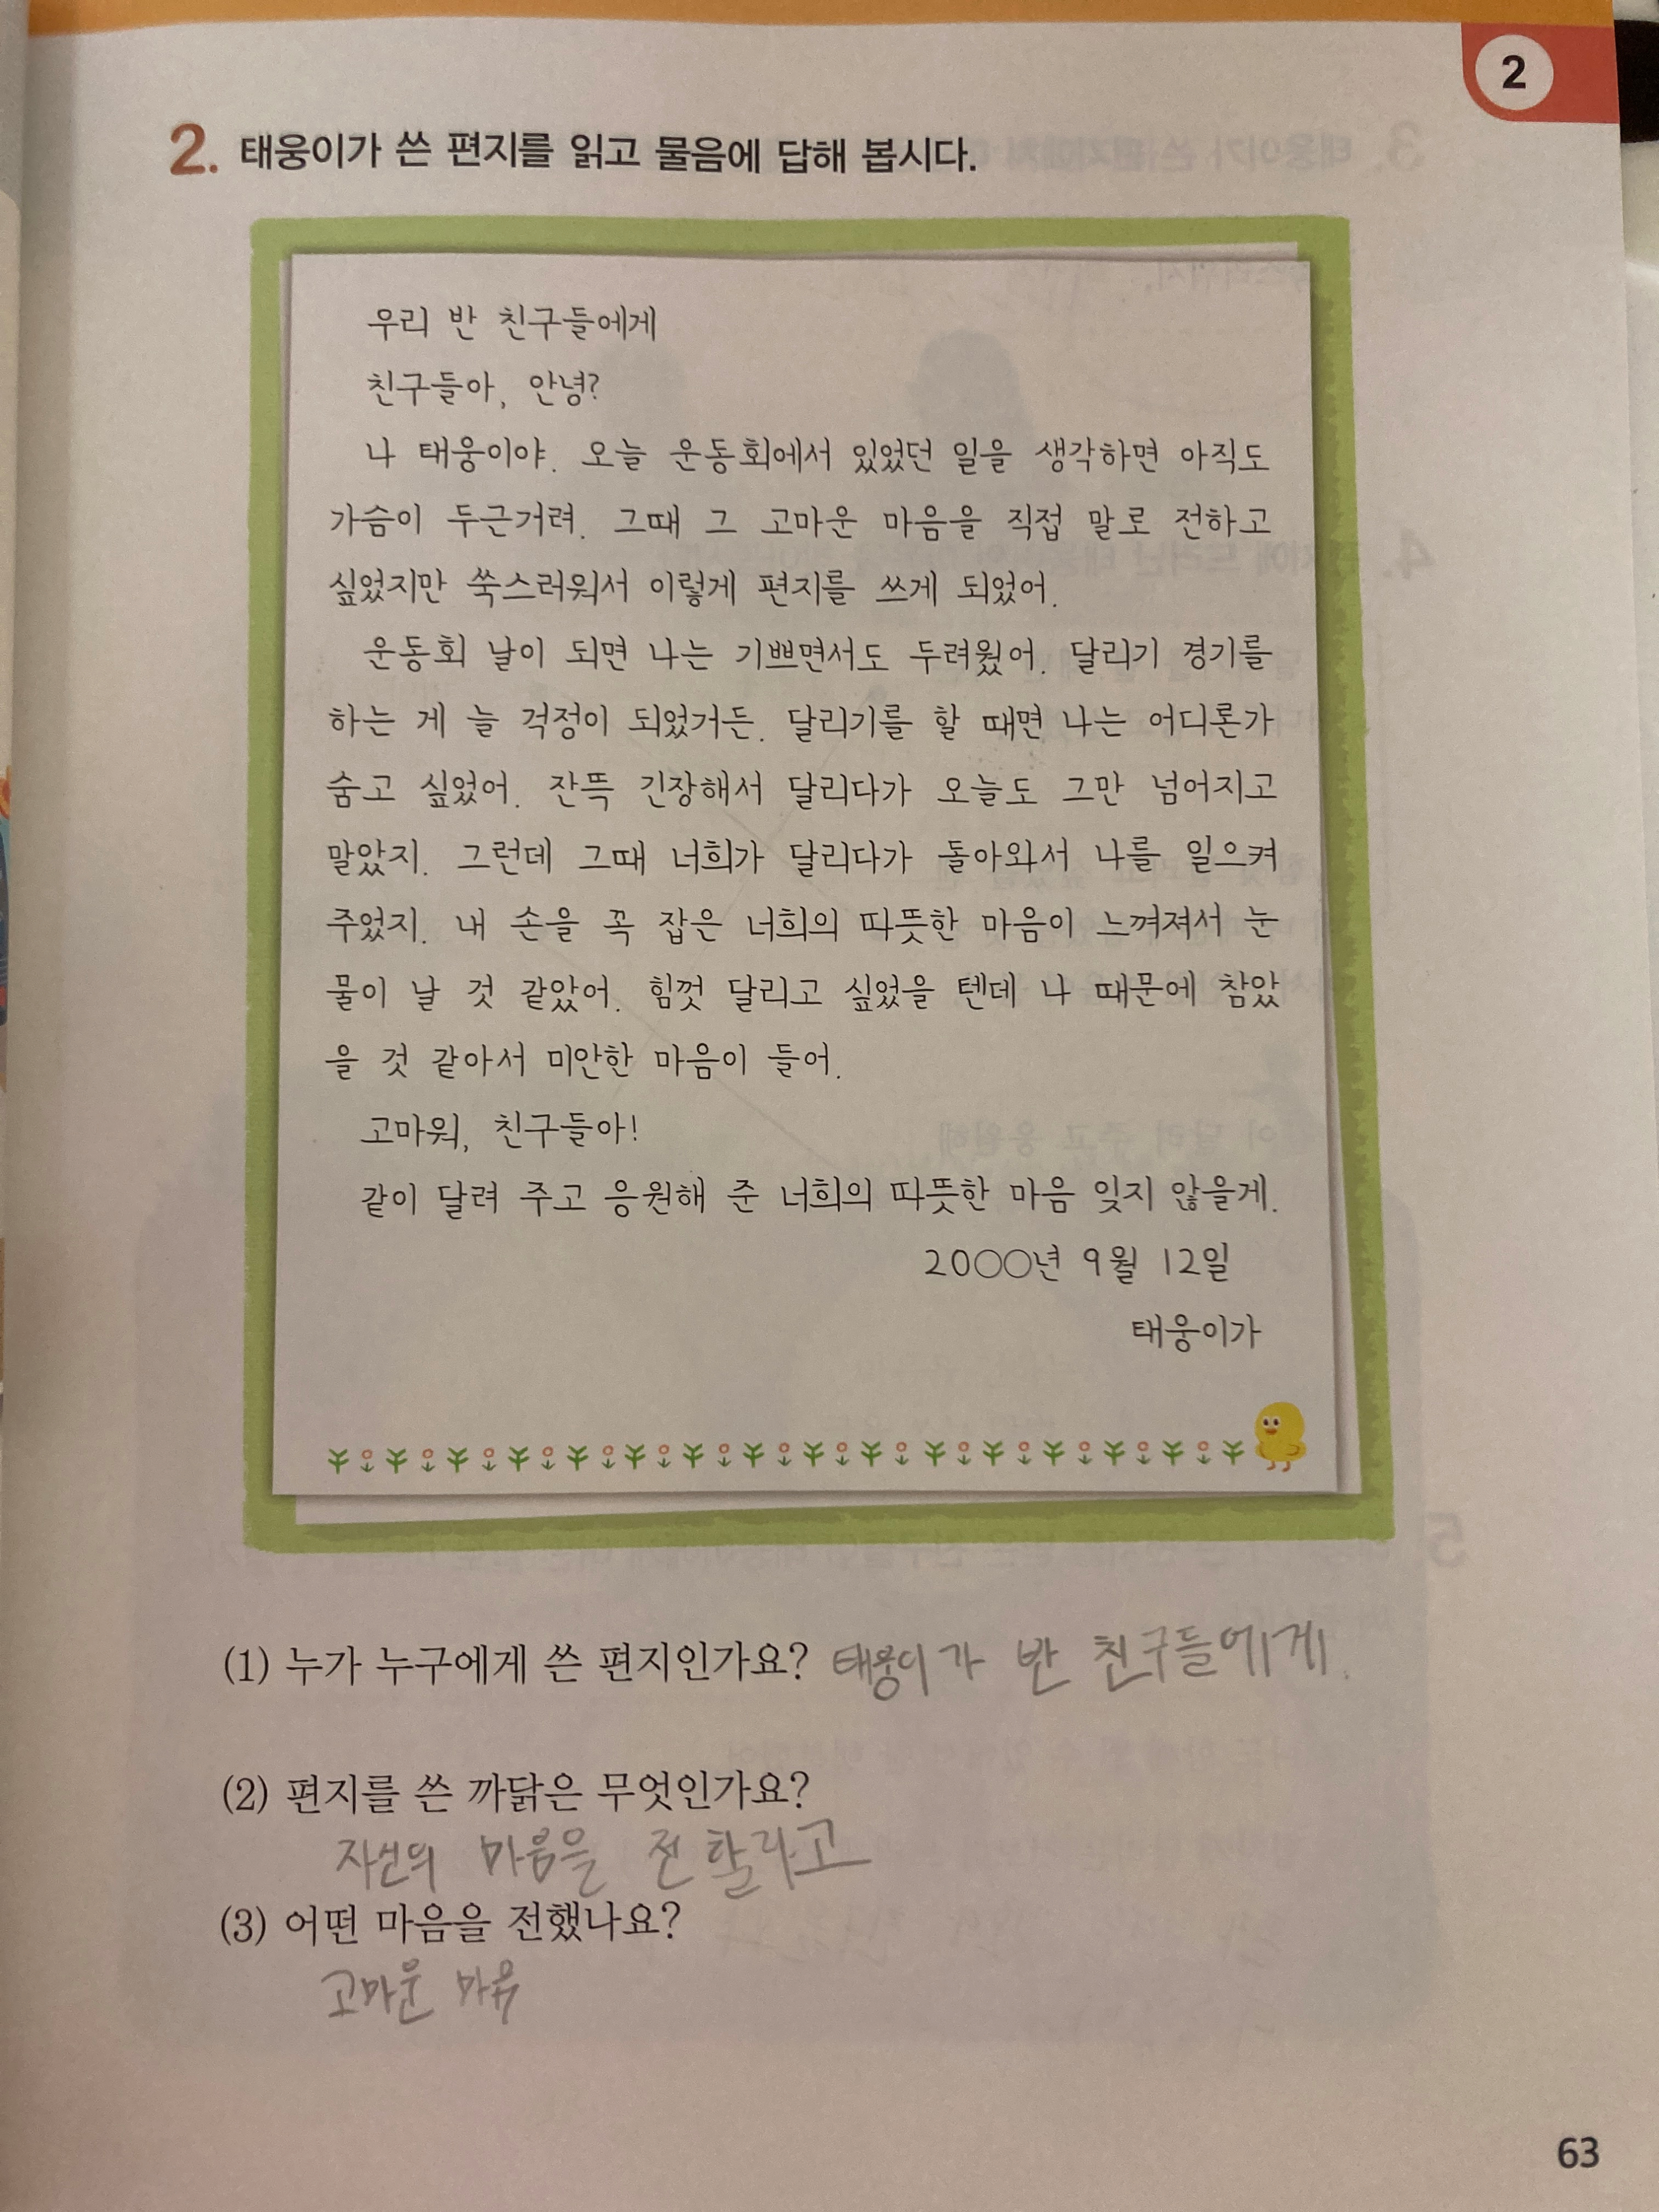 2
2. 태웅이가 쓴 편지를 읽고 물음에 답해 봅시다.
우리 반 친구들에게
친구들아, 안녕?
나 태웅이야. 오늘 운동회에서 있었던 일을 생각하면 아직도
가슴이 두근거려. 그때 그 고마운 마음을 직접 말로 전하고
싶었지만 쑥스러워서 이렇게 편지를 쓰게 되었어.
운동회 날이 되면 나는 기쁘면서도 두려웠어. 달리기 경기를
하는 게 늘 걱정이 되었거든. 달리기를 할 때면 나는 어디론가
숨고 싶었어. 잔뜩 긴장해서 달리다가 오늘도 그만 넘어지고
말았지. 그런데 그때 너희가 달리다가 돌아와서 나를 일으켜
주었지. 내 손을 꼭 잡은 너희의 따뜻한 마음이 느껴져서 눈
물이 날 것 같았어. 힘껏 달리고 싶었을 텐데 나 때문에 참았
을 것 같아서 미안한 마음이 들어.
고마워, 친구들아!
같이 달려 주고 응원해 준 너희의 따뜻한 마음 잊지 않을게.
20○○년 9월 12일
태웅이가
(1) 누가 누구에게 쓴 편지인가요? 태웅이가 반 친구들에게.
(2) 편지를 쓴 까닭은 무엇인가요?
자신의 마음을 전할라고
(3) 어떤 마음을 전했나요?
고마운 마음
63